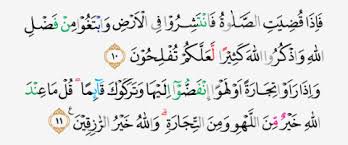 فَاِذَا قُضِيَتِ الصَّلٰوةُ فَانْتَشِرُوْا فِى الْاَرْضِ وَابْتَغُوْا مِنْ فَضْلِ
اللّٰهِ وَاذْكُرُوا اللّٰهَ كَثِيْرًا لَّعَلَّكُمْ تُفْلِحُوْنَ ١٠
وَاِذَا رَاَوْا تِجَارَةً اَوْ لَهْوًا ۨانْفَضُّوْٓا اِلَيْهَا وَتَرَكُوْكَ قَاۤىِٕمًاۗ قُلْ مَا عِنْدَ
اللّٰهِ خَيْرٌ مِّنَ اللَّهْوِ وَمِنَ التِّجَارَةِۗ وَاللّٰهُ خَيْرُ الرّٰزِقِيْنَ ١١ ࣖ